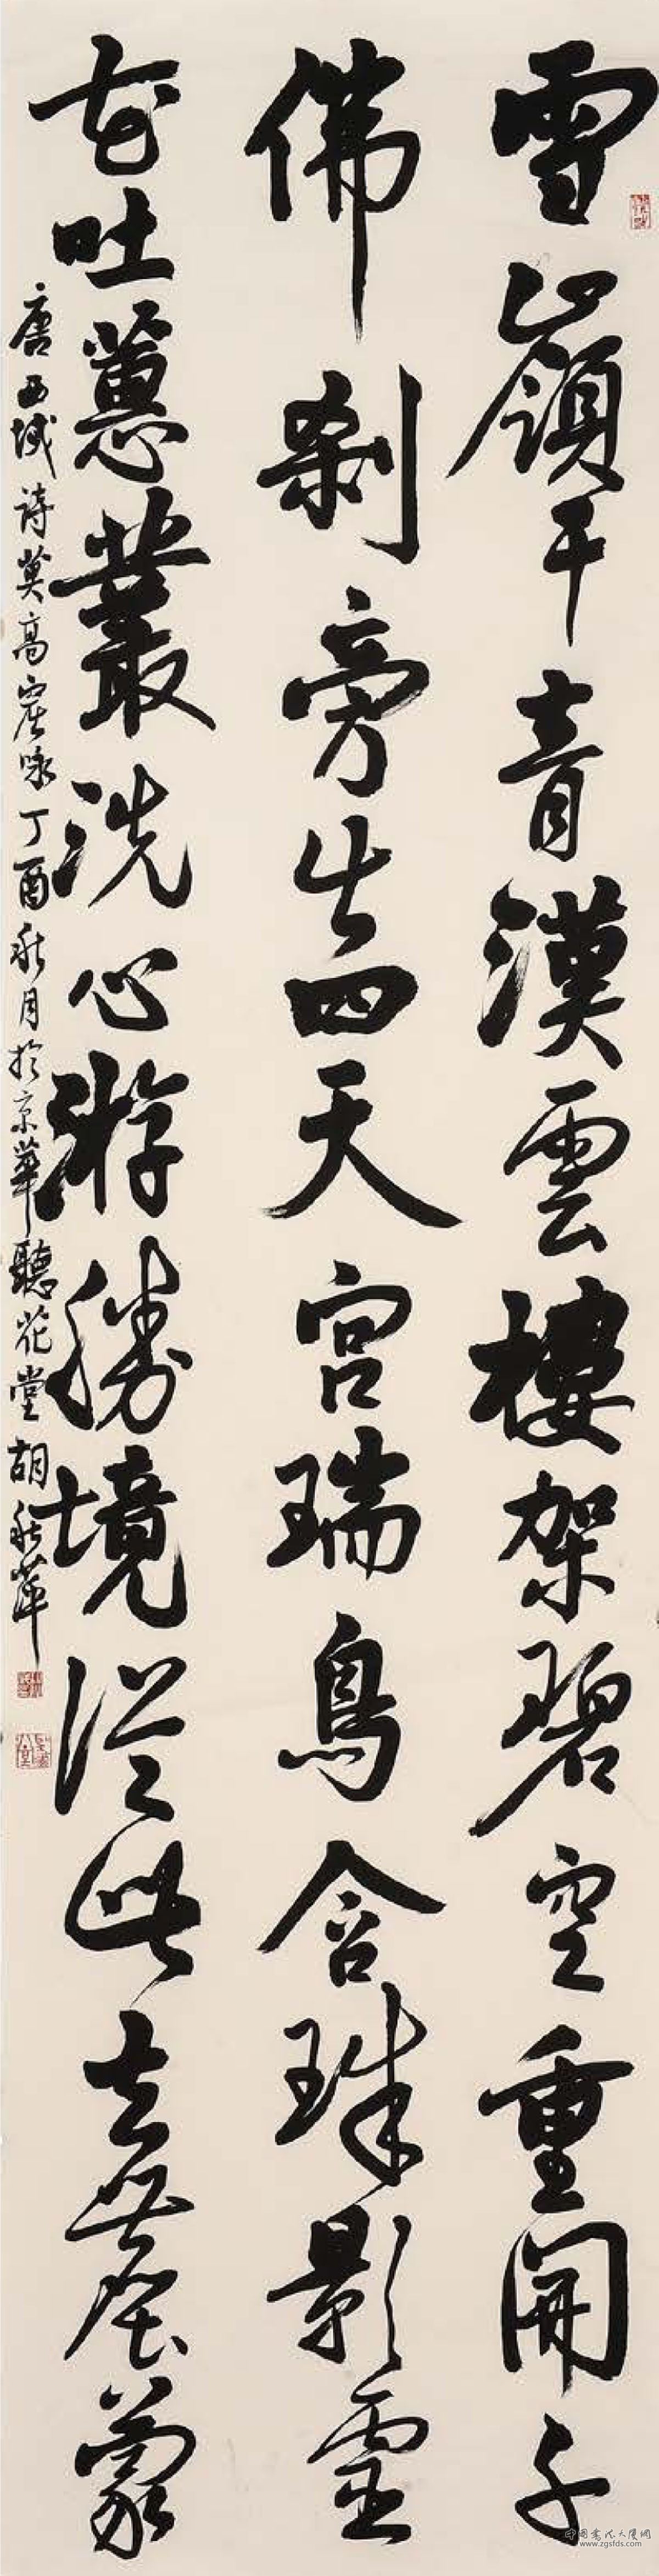 雪嶺干青漢雲樓架碧空重開千
佛刹旁出四天宮瑞鳥含珠影靈
花吐蕙叢洗心游勝境從此去塵蒙
唐西域詩莫高窟咏丁酉秋月於京華聽花堂胡秋萍
www.zgsfds.com